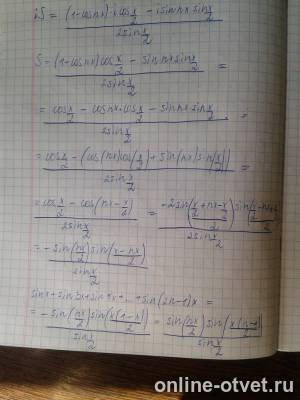 2S = ((1-cosnx)·cos x/2 - sin nx sin x/2) / (2sin x/2)
S = ((1-cosnx)cos x/2 - sin nx sin x/2) / (2sin x/2) =
= (cos x/2 - cosnx·cos x/2 - sin nx sin x/2) / (2sin x/2) =
= (cos x/2 - (cos(nx)cos(x/2) + sin(nx)sin(x/2))) / (2sin x/2) =
= (cos x/2 - cos(nx-x/2)) / (2sin x/2) =
= - sin(nx/2) sin(x-nx/2) / sin x/2
sinx+sin3x+sin5x+...+sin(2n-1)x =
= - sin(nx/2) sin(x(1-n)/2) / sin x/2 = sin(nx/2) sin(x(n-1)/2) / sin x/2
online-otvet.ru